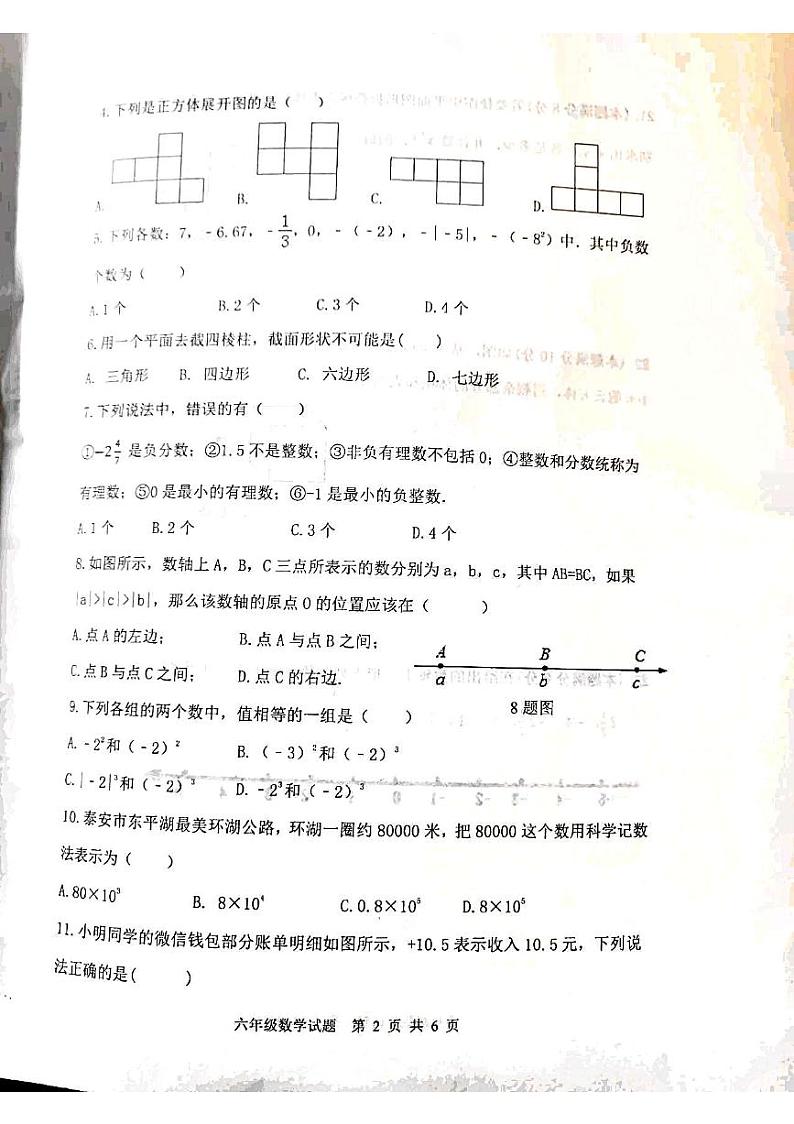 4.下列是正方体展开图的是（    ）
A.    B.    C.    D.
5.下列各数：7，－6.67，－1/3，0，－（－2），－|－5|，－（－8²）中．其中负数
个数为（    ）
A.1个    B.2个    C.3个    D.4个
6.用一个平面去截四棱柱，截面形状不可能是(    )
A. 三角形    B. 四边形    C. 六边形    D. 七边形
7.下列说法中，错误的有（    ）
①－2 4/7 是负分数；②1.5不是整数；③非负有理数不包括0；④整数和分数统称为
有理数；⑤0是最小的有理数；⑥-1是最小的负整数．
A.1个    B.2个    C.3个    D.4个
8.如图所示，数轴上A，B，C三点所表示的数分别为a，b，c，其中AB=BC，如果
|a|>|c|>|b|，那么该数轴的原点O的位置应该在（    ）
A.点A的左边；    B.点A与点B之间；
C.点B与点C之间；    D.点C的右边．
A    B    C
a    b    c
8题图
9.下列各组的两个数中，值相等的一组是（    ）
A.－2²和（－2）²    B.（－3）²和（－2）³
C.|－2|³和（－2）³    D.－2³和（－2）³
10.泰安市东平湖最美环湖公路，环湖一圈约80000米，把80000这个数用科学记数
法表示为（    ）
A.80×10³    B. 8×10⁴    C.0.8×10⁵    D.8×10⁵
11.小明同学的微信钱包部分账单明细如图所示，+10.5表示收入10.5元，下列说
法正确的是(    )
六年级数学试题  第 2 页 共 6 页